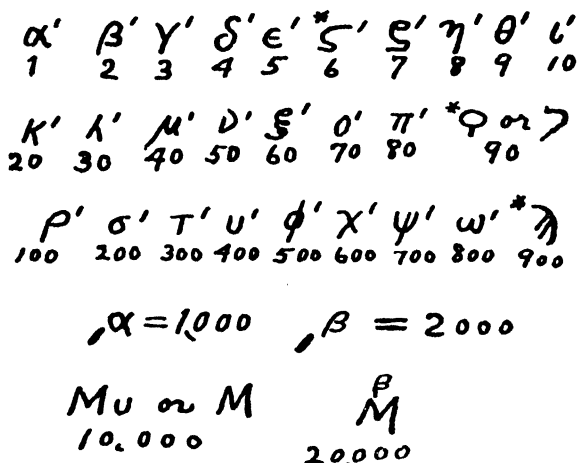 α′ β′ γ′ δ′ ϵ′ *ϛ′ ζ′ η′ θ′ ι′
1 2 3 4 5 6 7 8 9 10
κ′ λ′ μ′ ν′ ξ′ ο′ π′ *ϙ or ϟ
20 30 40 50 60 70 80 90
ρ′ σ′ τ′ υ′ ϕ′ χ′ ψ′ ω′ *ϡ
100 200 300 400 500 600 700 800 900
͵α = 1,000 ͵β = 2000
Mυ or M β
M
10,000 20,000